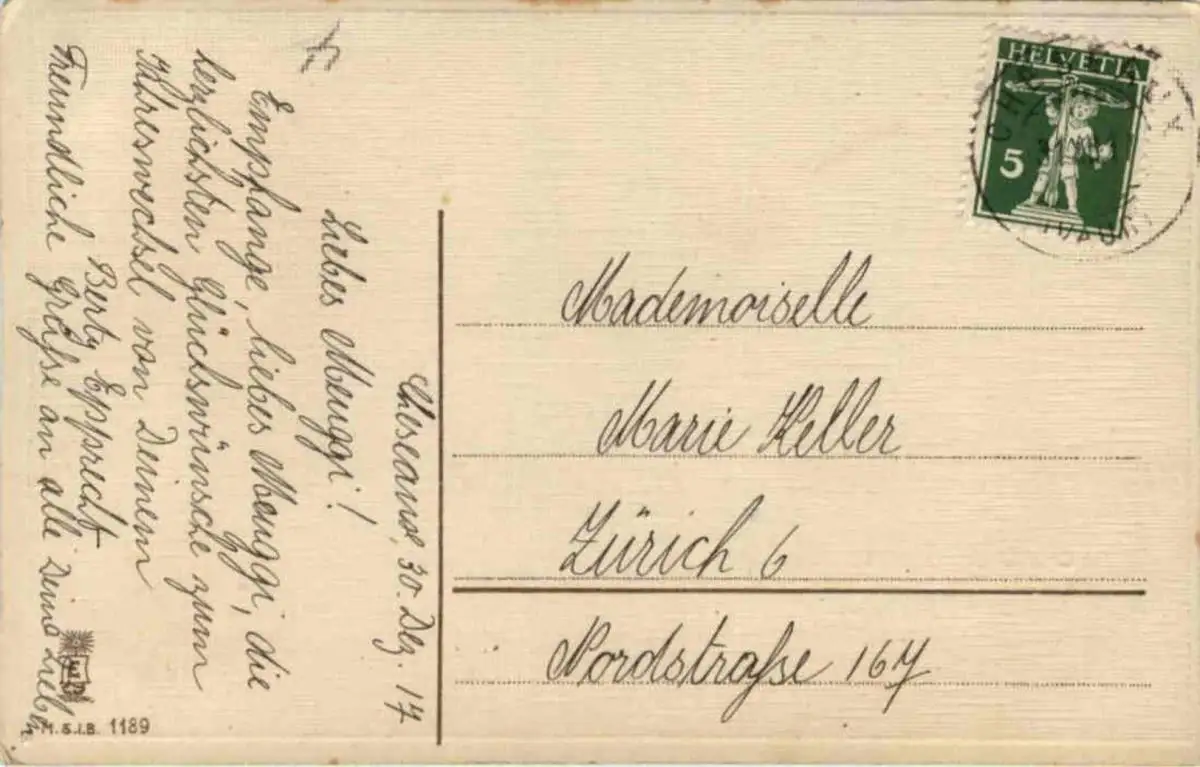 30. Dez. 17
Liebes Meuggi!
Empfange, liebes Meuggi, die
herzlichsten Glückswünsche zum
Jahreswechsel von Deinem
Berty Epprecht
Freundliche Grüsse an alle Deine Lieben
HELVETIA
5
Mademoiselle
Marie Keller
Zürich 6
Nordstrasse 167
M.S.i.B. 1189